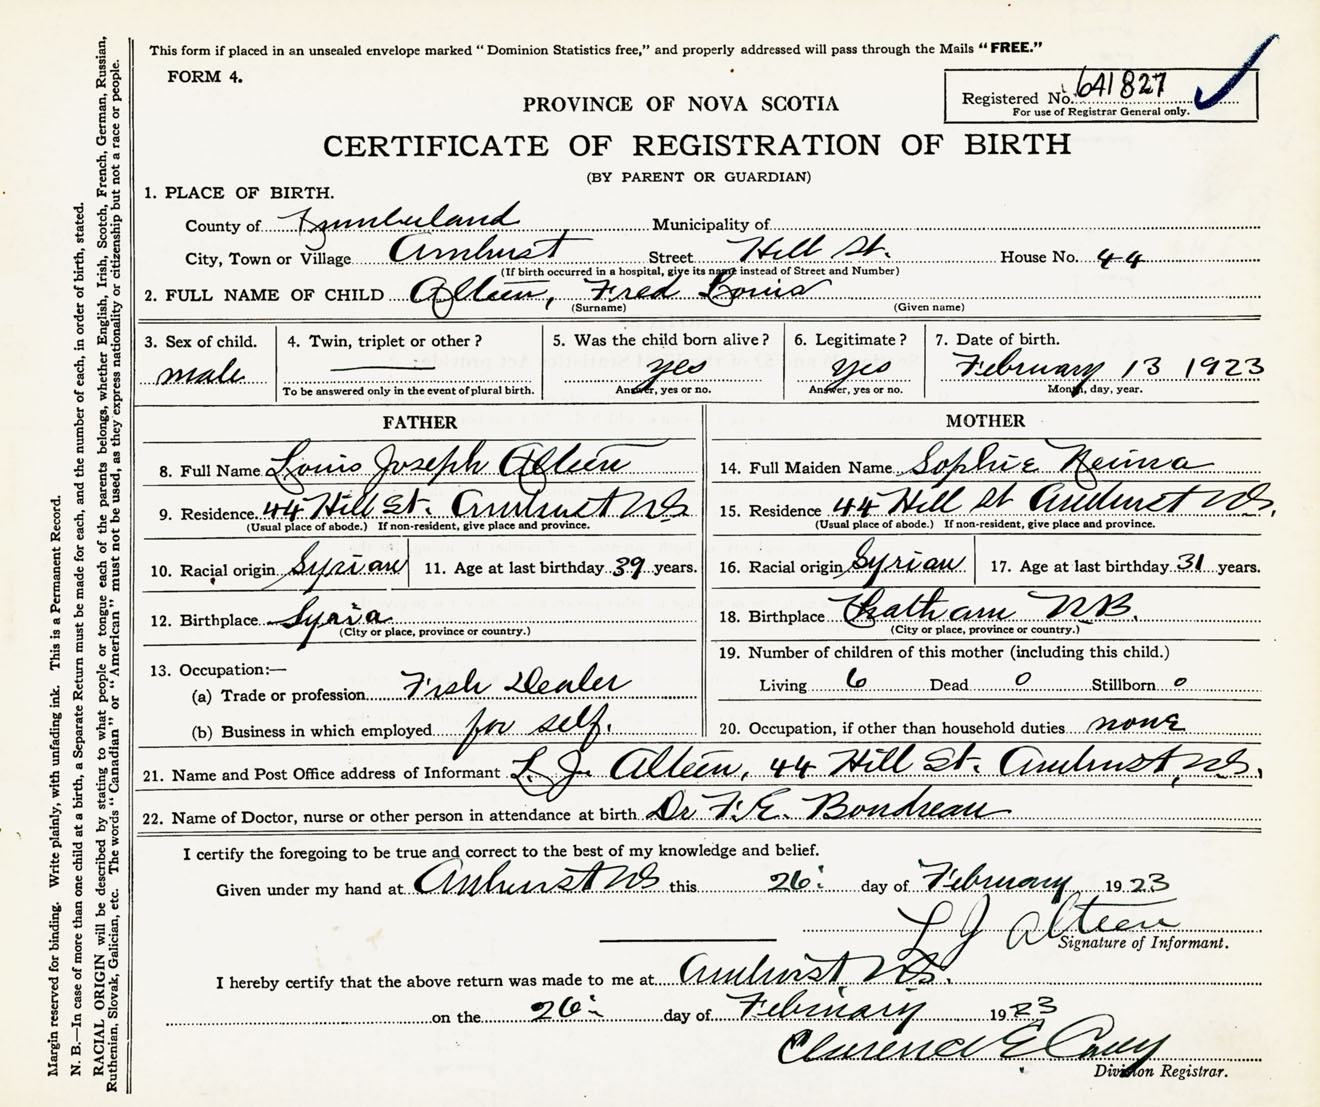 This form if placed in an unsealed envelope marked "Dominion Statistics free," and properly addressed will pass through the Mails "FREE."
FORM 4.
Registered No. 641827
For use of Registrar General only.
PROVINCE OF NOVA SCOTIA
CERTIFICATE OF REGISTRATION OF BIRTH
(BY PARENT OR GUARDIAN)
1. PLACE OF BIRTH.
County of Cumberland Municipality of
City, Town or Village Amherst Street Hill St. House No. 44
(If birth occurred in a hospital, give its name instead of Street and Number)
2. FULL NAME OF CHILD Alteen, Fred Louis
(Surname) (Given name)
3. Sex of child. 4. Twin, triplet or other? 5. Was the child born alive? 6. Legitimate? 7. Date of birth.
male yes yes February 13 1923
To be answered only in the event of plural birth. Answer, yes or no. Answer, yes or no. Month, day, year.
FATHER
8. Full Name Louis Joseph Alteen
9. Residence 44 Hill St. Amherst N.S.
(Usual place of abode.) If non-resident, give place and province.
10. Racial origin Syrian 11. Age at last birthday 39 years.
12. Birthplace Syria
(City or place, province or country.)
13. Occupation:—
(a) Trade or profession Fish Dealer
(b) Business in which employed for self.
MOTHER
14. Full Maiden Name Sophie
15. Residence 44 Hill St Amherst N.S.
(Usual place of abode.) If non-resident, give place and province.
16. Racial origin Syrian 17. Age at last birthday 31 years.
18. Birthplace Chatham N.B.
(City or place, province or country.)
19. Number of children of this mother (including this child.)
Living 6 Dead 0 Stillborn 0
20. Occupation, if other than household duties none
21. Name and Post Office address of Informant L. J. Alteen, 44 Hill St. Amherst, N.S.
22. Name of Doctor, nurse or other person in attendance at birth Dr F. E. Boudreau
I certify the foregoing to be true and correct to the best of my knowledge and belief.
Given under my hand at Amherst NS this 26: day of February 1923
L J Alteen
Signature of Informant.
I hereby certify that the above return was made to me at Amherst, N.S.
on the 26: day of February 1923
Clarence E Casey
Division Registrar.
Margin reserved for binding. Write plainly, with unfading ink. This is a Permanent Record.
N. B.—In case of more than one child at a birth, a Separate Return must be made for each, and the number of each, in order of birth, stated.
RACIAL ORIGIN will be described by stating to what people or tongue each of the parents belongs, whether English, Irish, Scotch, French, German, Russian,
Ruthenian, Slovak, Galician, etc. The words "Canadian" or "American" must not be used, as they express nationality or citizenship but not a race or people.